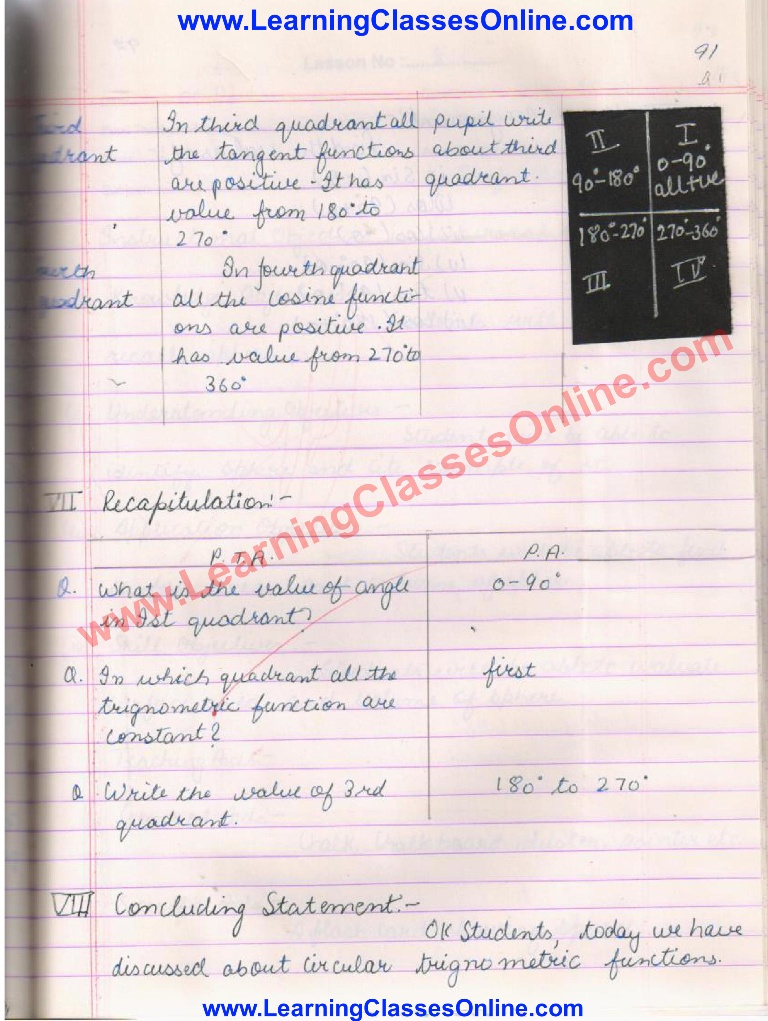 www.LearningClassesOnline.com
91
In third quadrant all
the tangent functions
are positive. It has
value from 180° to
270°
pupil write
about third
quadrant.
II
I
90°-180°
0-90°
all +ve
180°-270°
270°-360°
III
IV
In fourth quadrant
all the cosine functi-
ons are positive. It
has value from 270° to
360°
VII Recapitulation:-
P.T.A.
P.A.
Q. What is the value of angle
in Ist quadrant?
0-90°
Q. In which quadrant all the
trignometric function are
constant?
first
Q Write the value of 3rd
quadrant.
180° to 270°
VIII Concluding Statement:-
OK Students, today we have
discussed about circular trignometric functions.
www.LearningClassesOnline.com
www.LearningClassesOnline.com